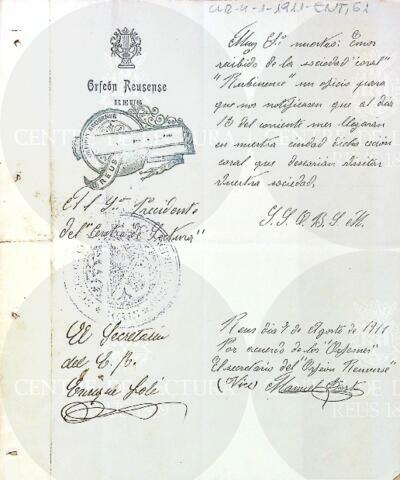 CLR-4-1-1911-ENT, 61
Orfeón Reusense
REUS
REUS
Muy Sres nuestros: Emos
recibido de la sociedad coral
"Rubinense" un oficio para
que nos notificasen que al dia
13 del corriente mes llegaran
en nuestra ciudad dicha
coral que desearian visitar
nuestra sociedad.
S. S. Q. B. S. M.
El Sr. Presidente
del "Centro de Lectura"
El Secretario
del C. B.
Enrique Solé
Reus dia 7 de Agosto de 1911
Por acuerdo de los
El secretario del "Orfeón Reusense"
(Vice) Manuel